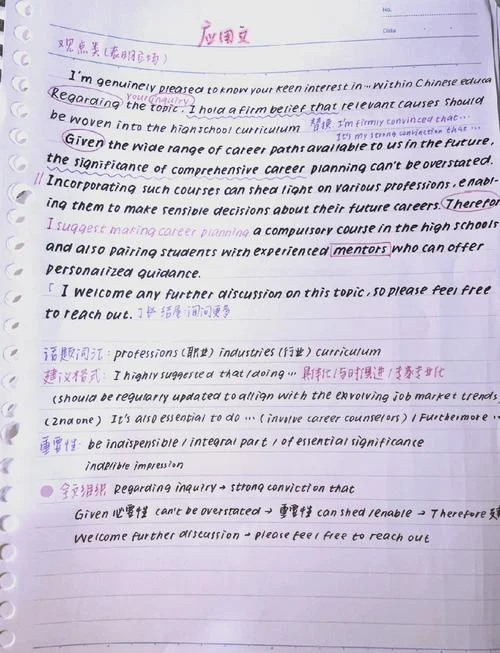 No.
Date
应用文
观点类(表明立场)
I'm genuinely pleased to know your keen interest in … within Chinese educa
your inquiry
Regarding the topic, I hold a firm belief that relevant causes should
be woven into the high school curriculum 替换: I'm firmly convinced that…
It's my strong conviction that …
Given the wide range of career paths available to us in the future,
the significance of comprehensive career planning can't be overstated.
Incorporating such courses can shed light on various professions, enabl-
ing them to make sensible decisions about their future careers. Therefor
I suggest making career planning a compulsory course in the high schools
and also pairing students with experienced mentors who can offer
personalized guidance.
I welcome any further discussion on this topic, so please feel free
to reach out.
话题词汇: professions (职业) industries (行业) curriculum
建议格式: I highly suggested that / doing … 具体化/与时俱进/
(should be regularly updated to allign with the exvolving job market trends
(2nd one) It's also essential to do … (involve career counselors) / Furthermore …
重要性: be indispensible / integral part / of essential significance
indelible impression
全文组织 Regarding inquiry → strong conviction that
Given 必要性 can't be overstated → 重要性 can shed /enable → Therefore
Welcome further discussion → please feel free to reach out